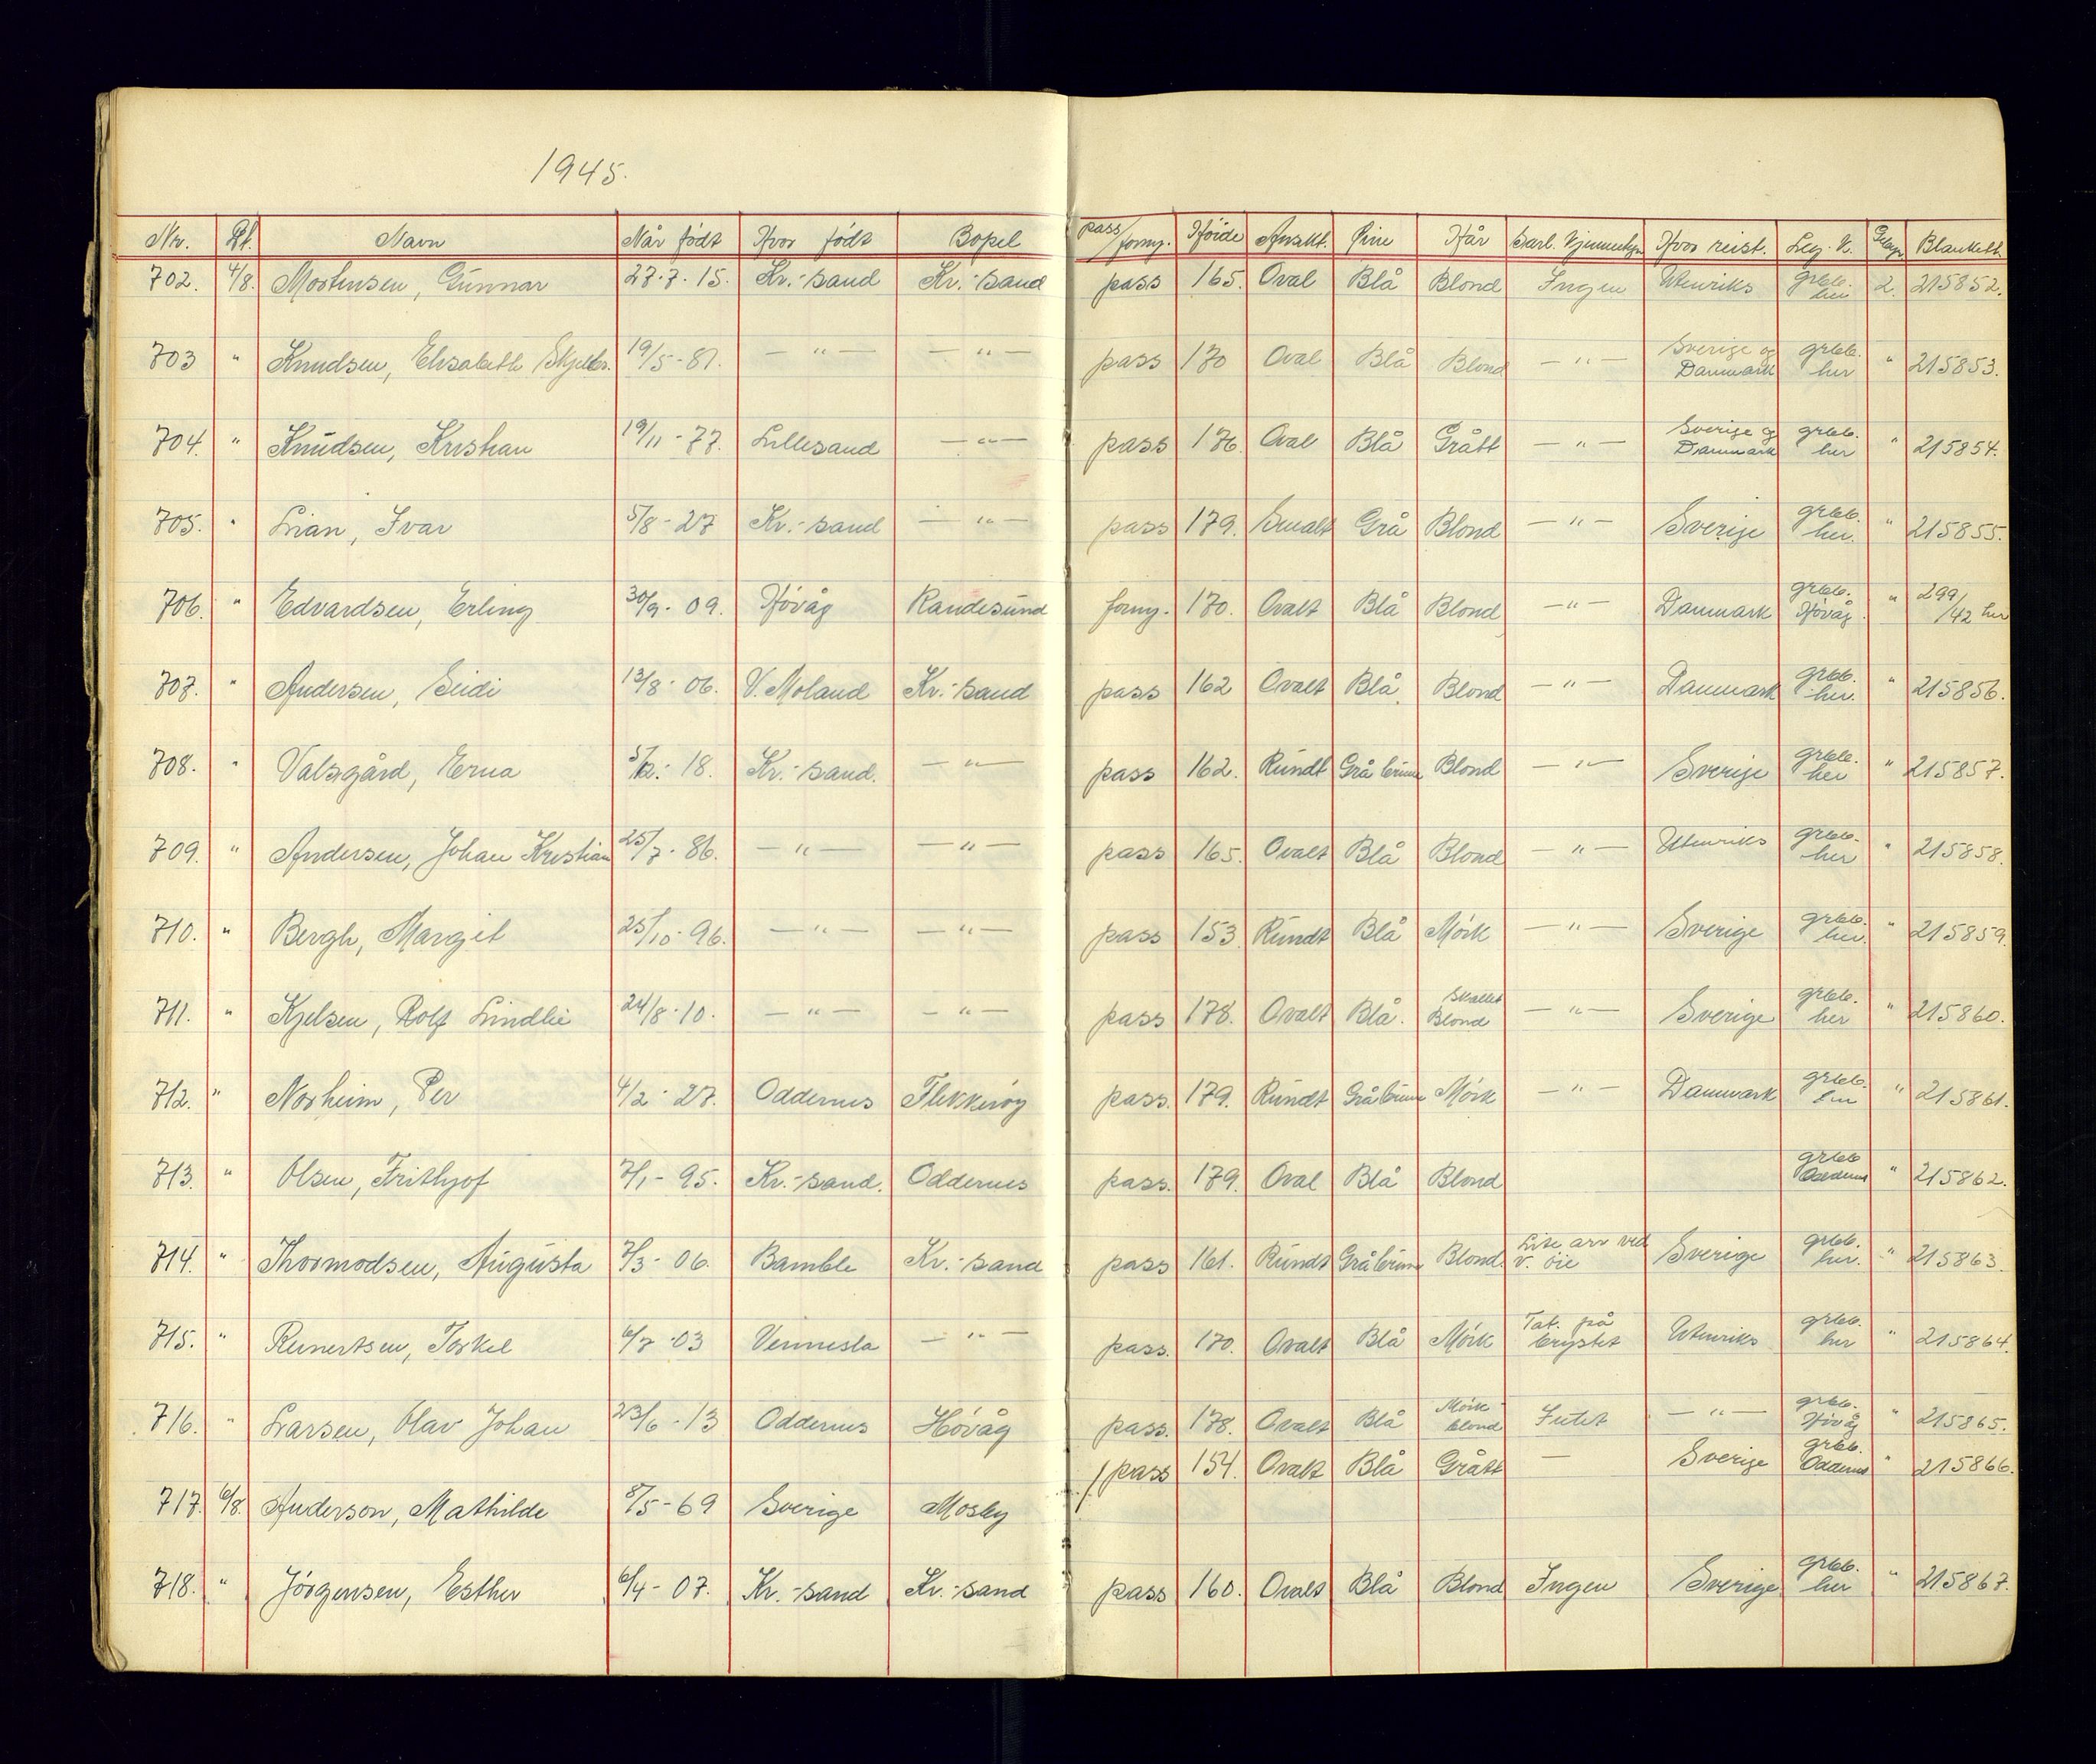 1945.
Nr. Dt. Navn Når født Hvor født Bopel pass/forny. Høide Ansikt. Øine Hår Særl. kjennetegn Hvor reist. Leg. K. Gebyr Blankett.
702. 4/8. Mortensen, Gunnar 27.7.15. Kr.-sand Kr.-sand pass 165. Oval Blå Blond Ingen Utenriks grbb. her 2. 215852.
703 " Knudsen, Elisabeth 19/5-81. —"— —"— pass 170 Oval Blå Blond —"— Sverige og Danmark grbb. her " 215853.
704. " Knudsen, Kristian 19/11-77. Lillesand —"— pass 176. Oval Blå Grått —"— Sverige og Danmark grbb. her " 215854.
705. " Lian, Ivar 5/8-27 Kr.-sand —"— pass 179. Smalt Grå Blond —"— Sverige grbb. her. " 215855.
706. " Edvardsen, Erling 30/9-09. Høvåg Randesund forny. 170. Ovalt Blå Blond —"— Danmark grbb. Høvåg. " 299/42 her
707. " Andersen, Seidi 13/8-06. V. Moland Kr.-sand pass 162 Ovalt Blå. Blond —"— Danmark grbb. her. " 215856.
708. " Valsgård, Erna 5/12.-18. Kr.-sand. —"— pass 162. Rundt Grå brune Blond —"— Sverige grbb. her " 215857.
709. " Andersen, Johan Kristian 25/7-86. —"— —"— pass 165. Ovalt Blå Blond —"— Utenriks grbb. her " 215858.
710. " Bergh, Margit 25/10-96. —"— —"— pass 153. Rundt Blå Mørk —"— Sverige grbb. her. " 215859.
711. " Kjelsen, Rolf Lindlie 24/8-10. —"— —"— pass 178. Ovalt Blå. Skallet Blond —"— Sverige grbb. her " 215860.
712. " Norheim, Per 4/2-27. Oddernes Flekkerøy pass. 179. Rundt Grå brune Mørk —"— Danmark grbb. her " 215861.
713. " Olsen, Frithjof 7/1-95. Kr.-sand. Oddernes pass. 179. Oval Blå Blond grbb Oddernes " 215862.
714. " Thormodsen, Augusta 7/3-06. Bamble Kr.-sand pass 161. Rundt Grå brune Blond. Lite arr ved v. øie Sverige grbb. her. " 215863.
715. " Reinertsen, Torkel 6/7-03 Vennesla —"— pass. 170. Ovalt Blå Mørk Tat. på brystet Utenriks grbb. her " 215864.
716. " Larsen, Olav Johan 23/6-13 Oddernes Høvåg pass. 178. Ovalt Blå Mørk-blond Intet —"— grbb. Høvåg " 215865.
717. 6/8. Anderson, Mathilde 8/5-69 Sverige Mosby /. pass 154. Ovalt Blå Grått — Sverige grbb. Oddernes " 215866.
718. " Jørgensen, Esther 6/4-07. Kr.-sand Kr.-sand pass 160. Ovalt Blå Blond Ingen Sverige grbb. her " 215867.